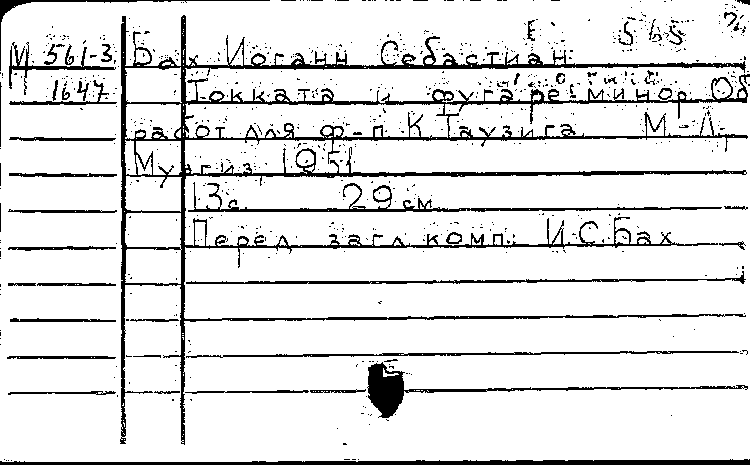 565
М 561-3 Бах Иоганн Себастиан
1647 Токката и фуга ре-минор Об
работ для ф-п. К. Таузига. М.-Л.,
Музгиз, 1951
13 с. 29 см.
Перед загл. комп.: И.С. Бах